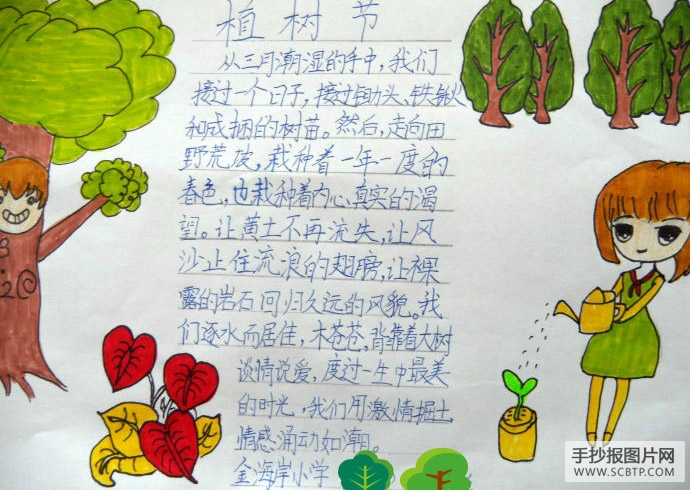 植树节
从三月潮湿的手中，我们
接过一个日子，接过锄头、铁锹
和成捆的树苗。然后，走向田
野荒坡，栽种着一年一度的
春色，也栽种着内心真实的渴
望。让黄土不再流失，让风
沙止住流浪的翅膀，让裸
露的岩石回归久远的风貌。我
们逐水而居住，木苍苍，背靠着大树
谈情说爱，度过一生中最美
的时光，我们用激情掘土，
情感涌动如潮。
金海岸小学
3
.20
手抄报图片网
WWW.SCBTP.COM